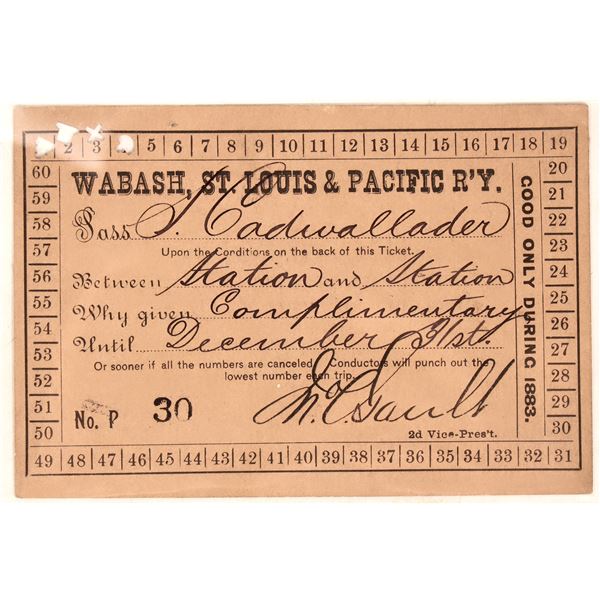 2 3 5 6 7 8 9 10 11 12 13 14 15 16 17 18 19
60 20
WABASH, ST. LOUIS & PACIFIC R'Y.
59 21
58 Pass S. Cadwallader 22
Upon the Conditions on the back of this Ticket.
57 23
56 Between Station and Station 24
55 Why given Complimentary 25
54 26
Until December 31st.
53 27
Or sooner if all the numbers are canceled. Conductors will punch out the
52 lowest number each trip. 28
51 No. P 30 29
50 30
2d Vice-Pres't.
49 48 47 46 45 44 43 42 41 40 39 38 37 36 35 34 33 32 31
GOOD ONLY DURING 1883.